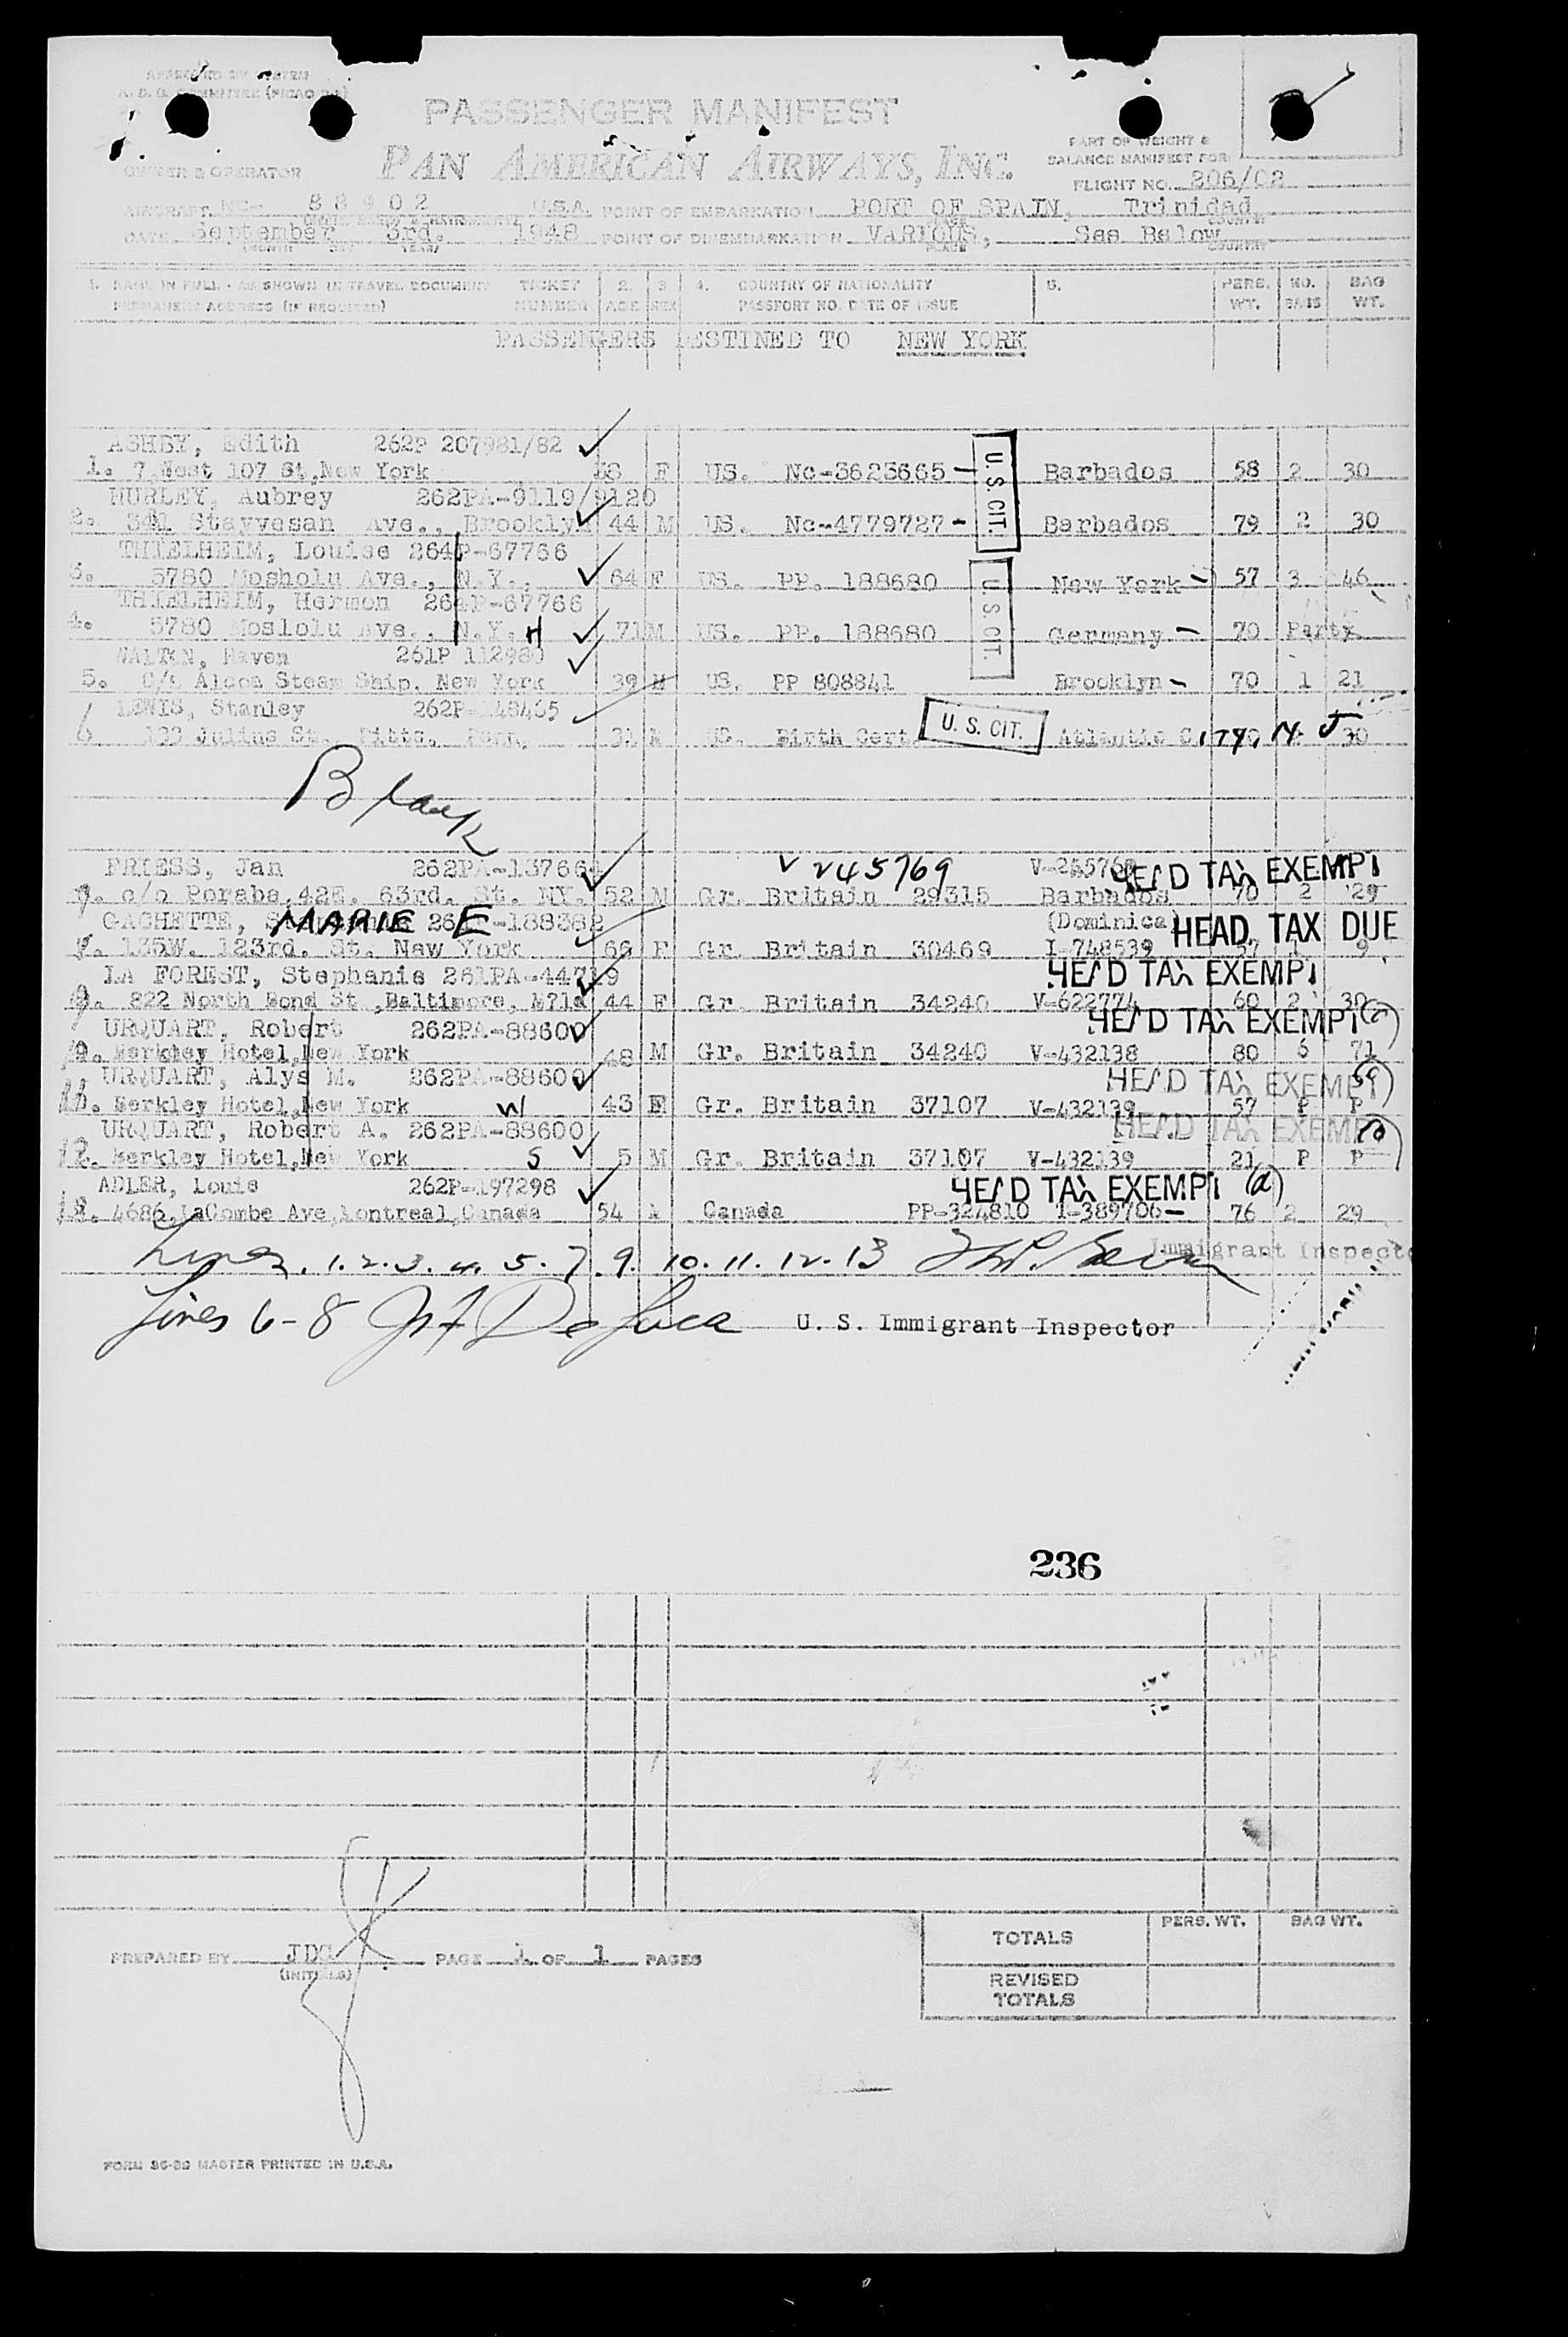 PASSENGER MANIFEST
PAN AMERICAN AIRWAYS, INC.
PART OF WEIGHT &
BALANCE MANIFEST FOR
OWNER & OPERATOR
FLIGHT NO. 206/02
AIRCRAFT NC- 88902 U.S.A. POINT OF EMBARKATION PORT OF SPAIN, Trinidad
DATE September 3rd. 1948 POINT OF DISEMBARKATION VARIOUS, See Below
1. NAME IN FULL - AS SHOWN IN TRAVEL DOCUMENT TICKET 2. 3 4. COUNTRY OF NATIONALITY 5. PERS. NO. BAG
PERMANENT ADDRESS (IF REQUIRED) NUMBER AGE SEX PASSPORT NO. DATE OF ISSUE WT. BAGS WT.
PASSENGERS DESTINED TO NEW YORK
ASHBY, Edith 262P 207981/82
1. 7 West 107 St, New York 38 F US. Nc-3623665 - U.S. CIT. Barbados 58 2 30
HURLEY, Aubrey 262PA-9119/9120
2. 341 Stayvesan Ave., Brooklyn 44 M US. Nc-4779727- Barbados 79 2 30
THIELHEIM, Louise 264P-67766
3. 5780 Mosholu Ave., N.Y., 64 F US. PP. 188680 U.S. CIT. New York - 57 3 46
THIELHEIM, Hermon 264P-67766
4. 5780 Moslolu Ave., N.Y. H 71 M US. PP. 188680 Germany - 70 Party
WALTON, Haven 261P 112980
5. C/o Alcoa Steam Ship. New York 39 M US. PP 808841 Brooklyn - 70 1 21
LEWIS, Stanley 262P-148465
6 133 Julius St., Pitts. Penn. 31 M US. Birth Cert. U. S. CIT. Atlantic C, N. J 30
Blank
FRIESS, Jan 262PA-13766 V 245769 HEAD TAX EXEMPT
7. c/o Poraba, 42E. 63rd. St. NY. 52 M Gr. Britain 29315 Barbados 70 2 29
GACHETTE, MARIE E 188382 (Dominica) HEAD TAX DUE
8. 135W. 123rd. St. New York 66 F Gr. Britain 30469 I-748539 57 1 9
LA FOREST, Stephanie 261PA-44719 HEAD TAX EXEMPT
9. 822 North Bond St., Baltimore, 44 F Gr. Britain 34240 V-622774 60 2 30
URQUART, Robert 262PA-88600 HEAD TAX EXEMPT
10. Berkley Hotel, New York 48 M Gr. Britain 34240 V-432138 80 6 71
URQUART, Alys M. 262PA-88600 HEAD TAX EXEMPT
11. Berkley Hotel, New York W 43 F Gr. Britain 37107 V-432139 57 P P
URQUART, Robert A. 262PA-88600 HEAD TAX EXEMPT
12. Berkley Hotel, New York S 5 M Gr. Britain 37107 V-432139 21 P P
ADLER, Louis 262P-197298 HEAD TAX EXEMPT (a)
13. 4686, LaCombe Ave, Montreal, Canada 54 M Canada PP-324810 T-389706- 76 2 29
Lines. 1. 2. 3. 4. 5. 7. 9. 10. 11. 12. 13 Immigrant Inspector
Lines 6-8 De Luca U. S. Immigrant Inspector
236
PERS. WT. BAG WT.
TOTALS
PREPARED BY PAGE 1 OF 1 PAGES
(INITIALS)
REVISED
TOTALS
FORM 36-39 MASTER PRINTED IN U.S.A.